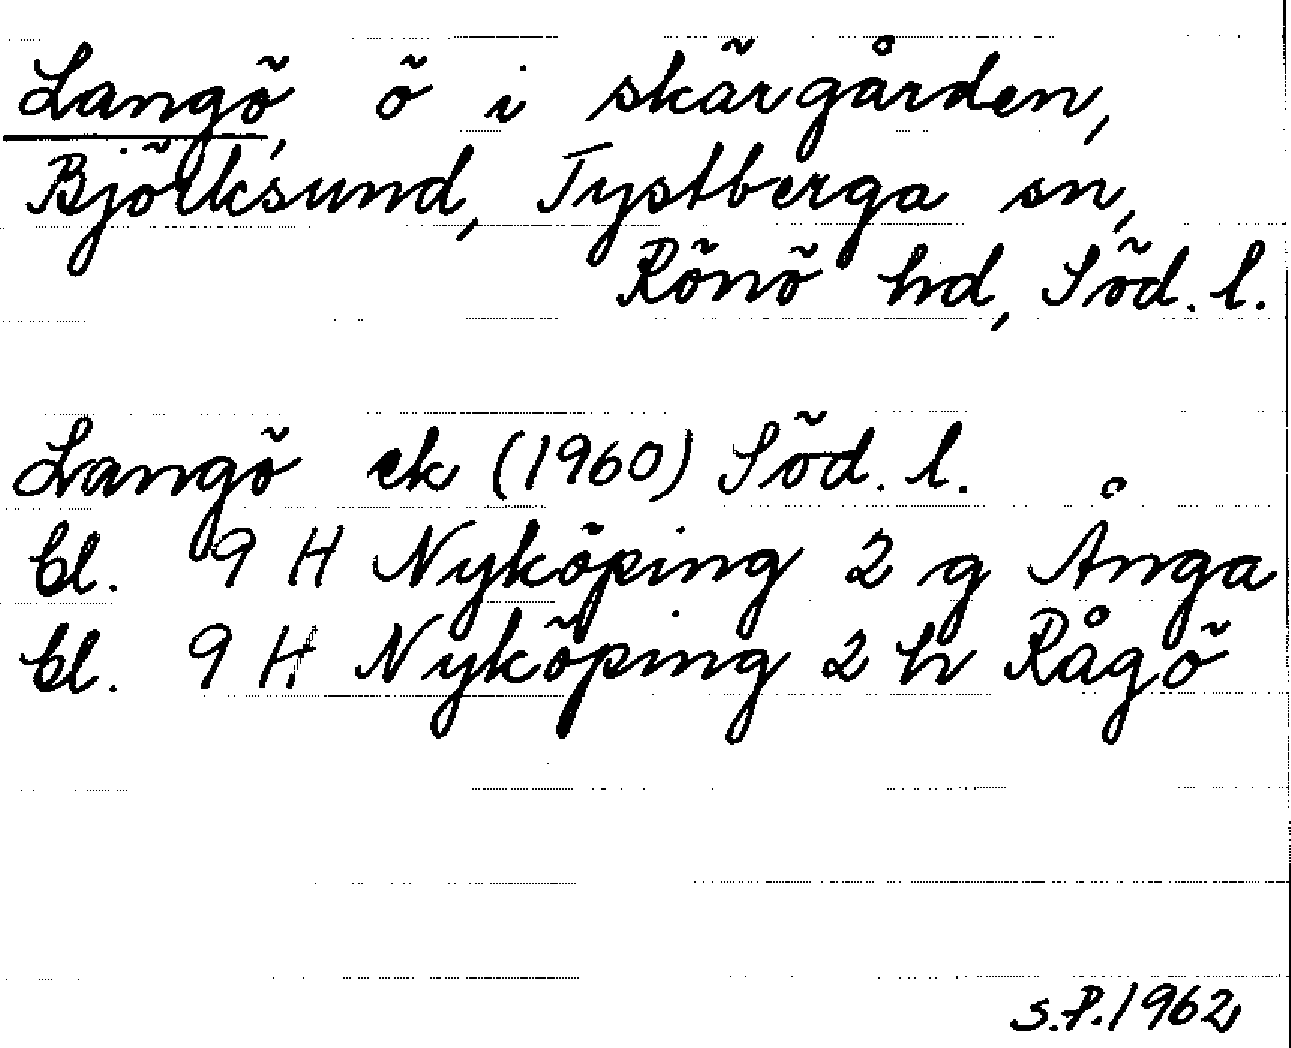 Langö, ö i skärgården,
Björksund, Tystberga sn,
Rönö hd, Söd. l.
Langö ek (1960) Söd. l.
bl. 9 H Nyköping 2 g Ånga
bl. 9 H Nyköping 2 h Rågö
S.P. 1962